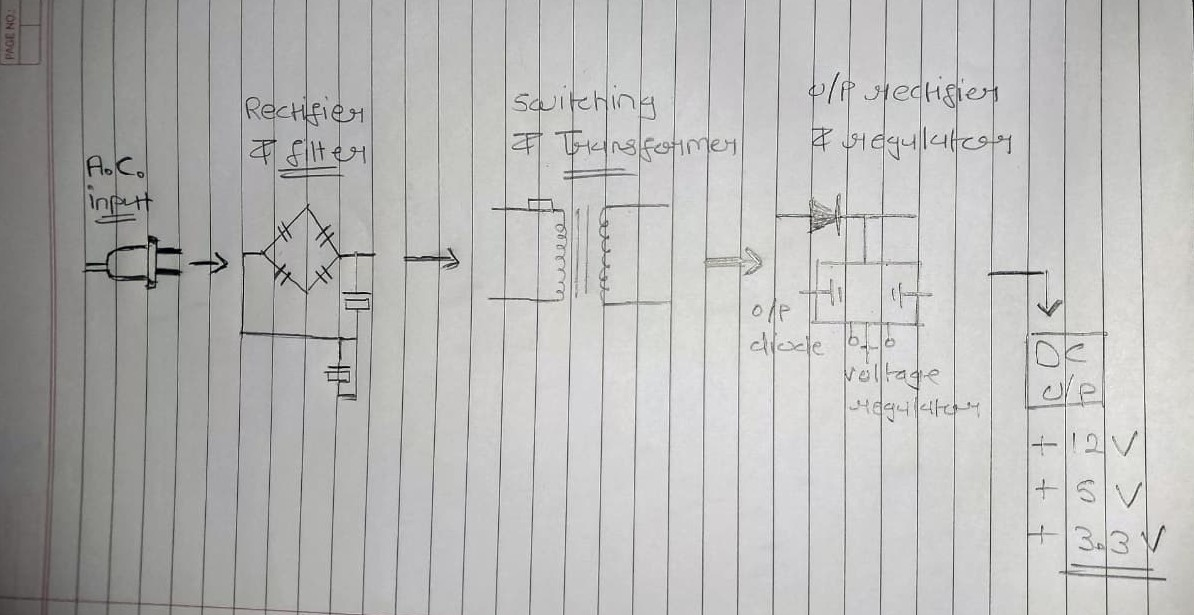 PAGE NO.:
A.C.
input
Rectifier
& filter
Switching
& Transformer
O/P rectifier
& regulator
O/P
diode
voltage
regulator
DC
O/P
+ 12 V
+ 5 V
+ 3.3 V